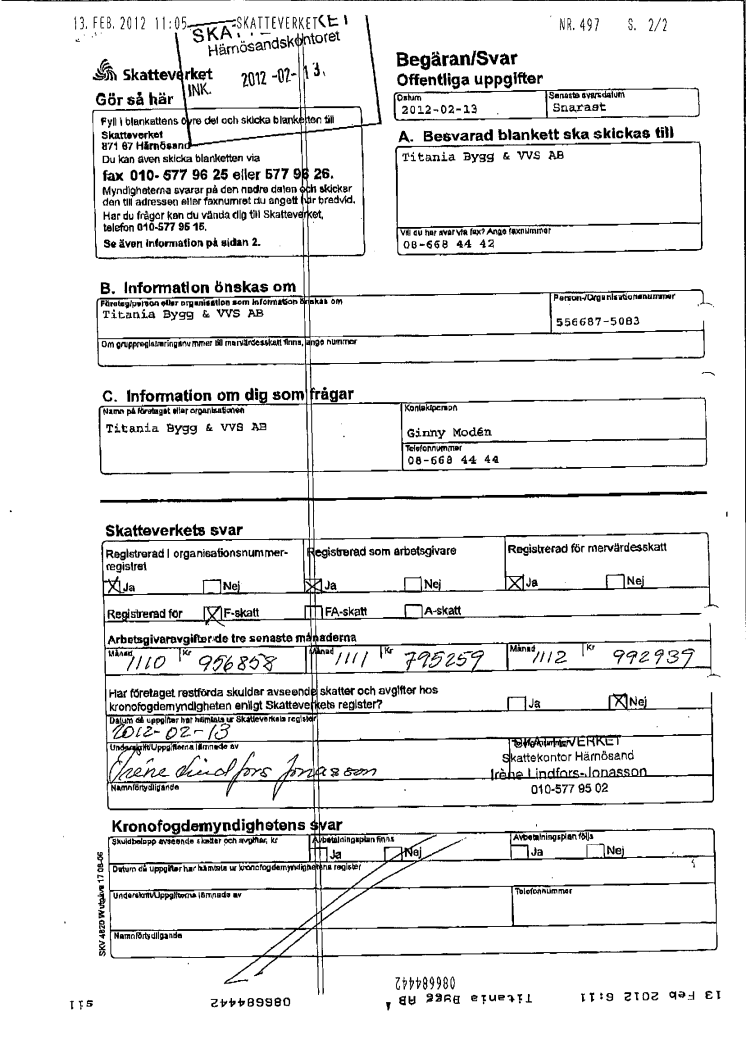 13. FEB. 2012 11:05 SKATTEVERKET NR. 497 S. 2/2
Härnösandskontoret
2012 -02- 13.
INK.
Skatteverket
Gör så här
Fyll i blankettens övre del och skicka blanketten till
Skatteverket
871 87 Härnösand
Du kan även skicka blanketten via
fax 010- 577 96 25 eller 577 96 26.
Myndigheterna svarar på den nedre delen och skickar
den till adressen eller faxnumret du angett här bredvid.
Har du frågor kan du vända dig till Skatteverket,
telefon 010-577 95 15.
Se även information på sidan 2.
Begäran/Svar
Offentliga uppgifter
Datum
2012-02-13
Senaste svarsdatum
Snarast
A. Besvarad blankett ska skickas till
Titania Bygg & VVS AB
Vill du ha svar via fax? Ange faxnummer
08-668 44 42
B. Information önskas om
Företag/person eller organisation som information önskas om
Titania Bygg & VVS AB
Person-/Organisationsnummer
556687-5083
Om gruppregistreringsnummer till mervärdesskatt finns, ange nummer
C. Information om dig som frågar
Namn på företaget eller organisationen
Titania Bygg & VVS AB
Kontaktperson
Ginny Modén
Telefonnummer
08-668 44 44
Skatteverkets svar
Registrerad i organisationsnummer-
registret
X Ja Nej
Registrerad som arbetsgivare
X Ja Nej
Registrerad för mervärdesskatt
X Ja Nej
Registrerad för X F-skatt FA-skatt A-skatt
Arbetsgivaravgifter de tre senaste månaderna
Månad 1110 Kr 956858 Månad 1111 Kr 795259 Månad 1112 Kr 992939
Har företaget restförda skulder avseende skatter och avgifter hos
kronofogdemyndigheten enligt Skatteverkets register?
Ja X Nej
Datum då uppgifter har hämtats ur Skatteverkets register
2012-02-13
Underskrift/Uppgifterna lämnade av
Iréne Lindfors Jonasson
Namnförtydligande
SKATTEVERKET
Skattekontor Härnösand
Iréne Lindfors-Jonasson
010-577 95 02
Kronofogdemyndighetens svar
Skuldbelopp avseende skatter och avgifter, kr
Arbetalningsplan finns
Ja Nej
Avbetalningsplan följs
Ja Nej
Datum då uppgifter har hämtats ur kronofogdemyndighetens register
Underskrift/Uppgifterna lämnade av
Telefonnummer
Namnförtydligande
SKV 4820 W utgåva 17 08-06
086684442
13 Feb 2012 9:11 Titania Bygg AB 0866884442 s11